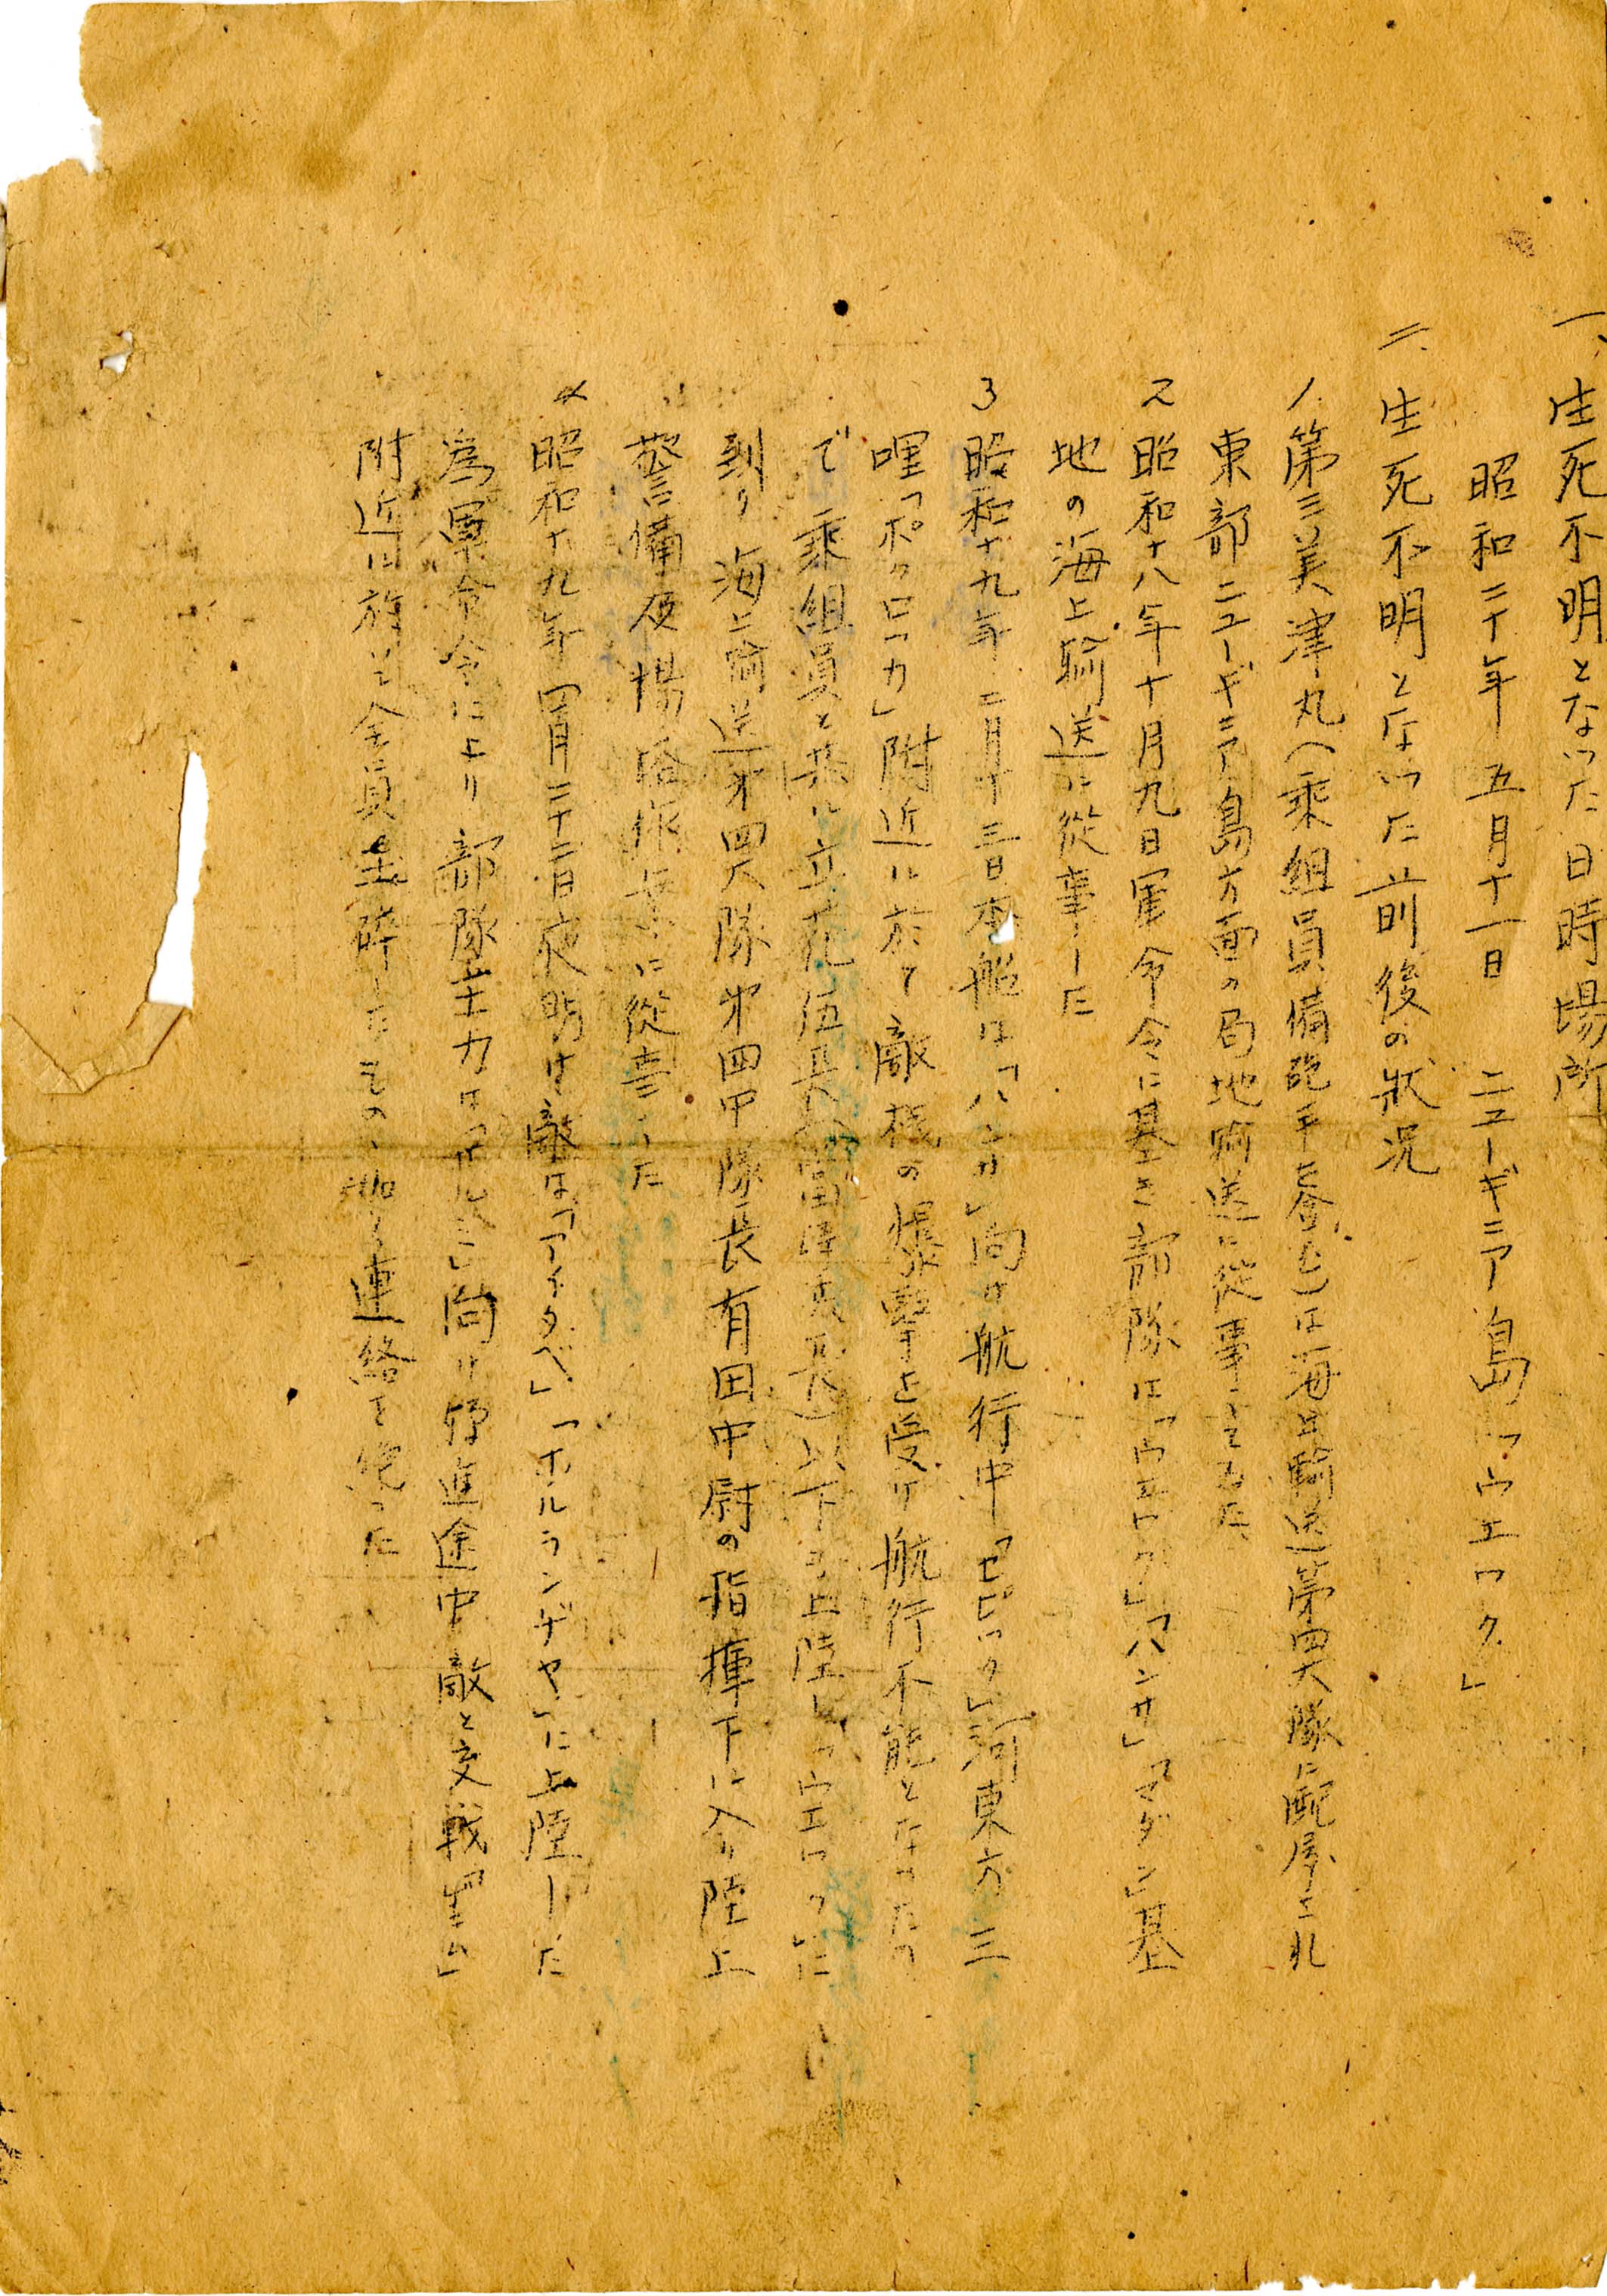 一、生死不明となつた日時場所
昭和二十年 五月十一日 ニューギニア島「ウエワク」
二、生死不明となつた前後の狀況
1.第三美津丸(乗組員備砲手 含む)は海上輸送第四大隊に配属され
東部ニューギニア島方面の局地輸送に従事してゐた
2昭和十八年十月九日軍命令に基き部隊は「ウエワク」「ハンサ」「マダン」基
地の海上輸送に從事した
3昭和十九年二月十三日本船は「ハンサ」向け航行中「セピック」河東方三
哩「ボクロカ」附近に於て敵機の爆撃を受け航行不能となつたの
で乗組員と共に立花伍長 以下 上陸し「ウエワク」に
到り海上輸送第四大隊第四中隊長有田中尉の指揮下に入り陸上
警備及揚塔作業に從事した
4昭和十九年四月二十二日夜明け敵は「アイタペ」「ホルランヂヤ」に上陸した
為軍命令により部隊主力は 向け 進途中敵と交戦
附近に於て全員玉砕したものゝ如く連絡を絶つた